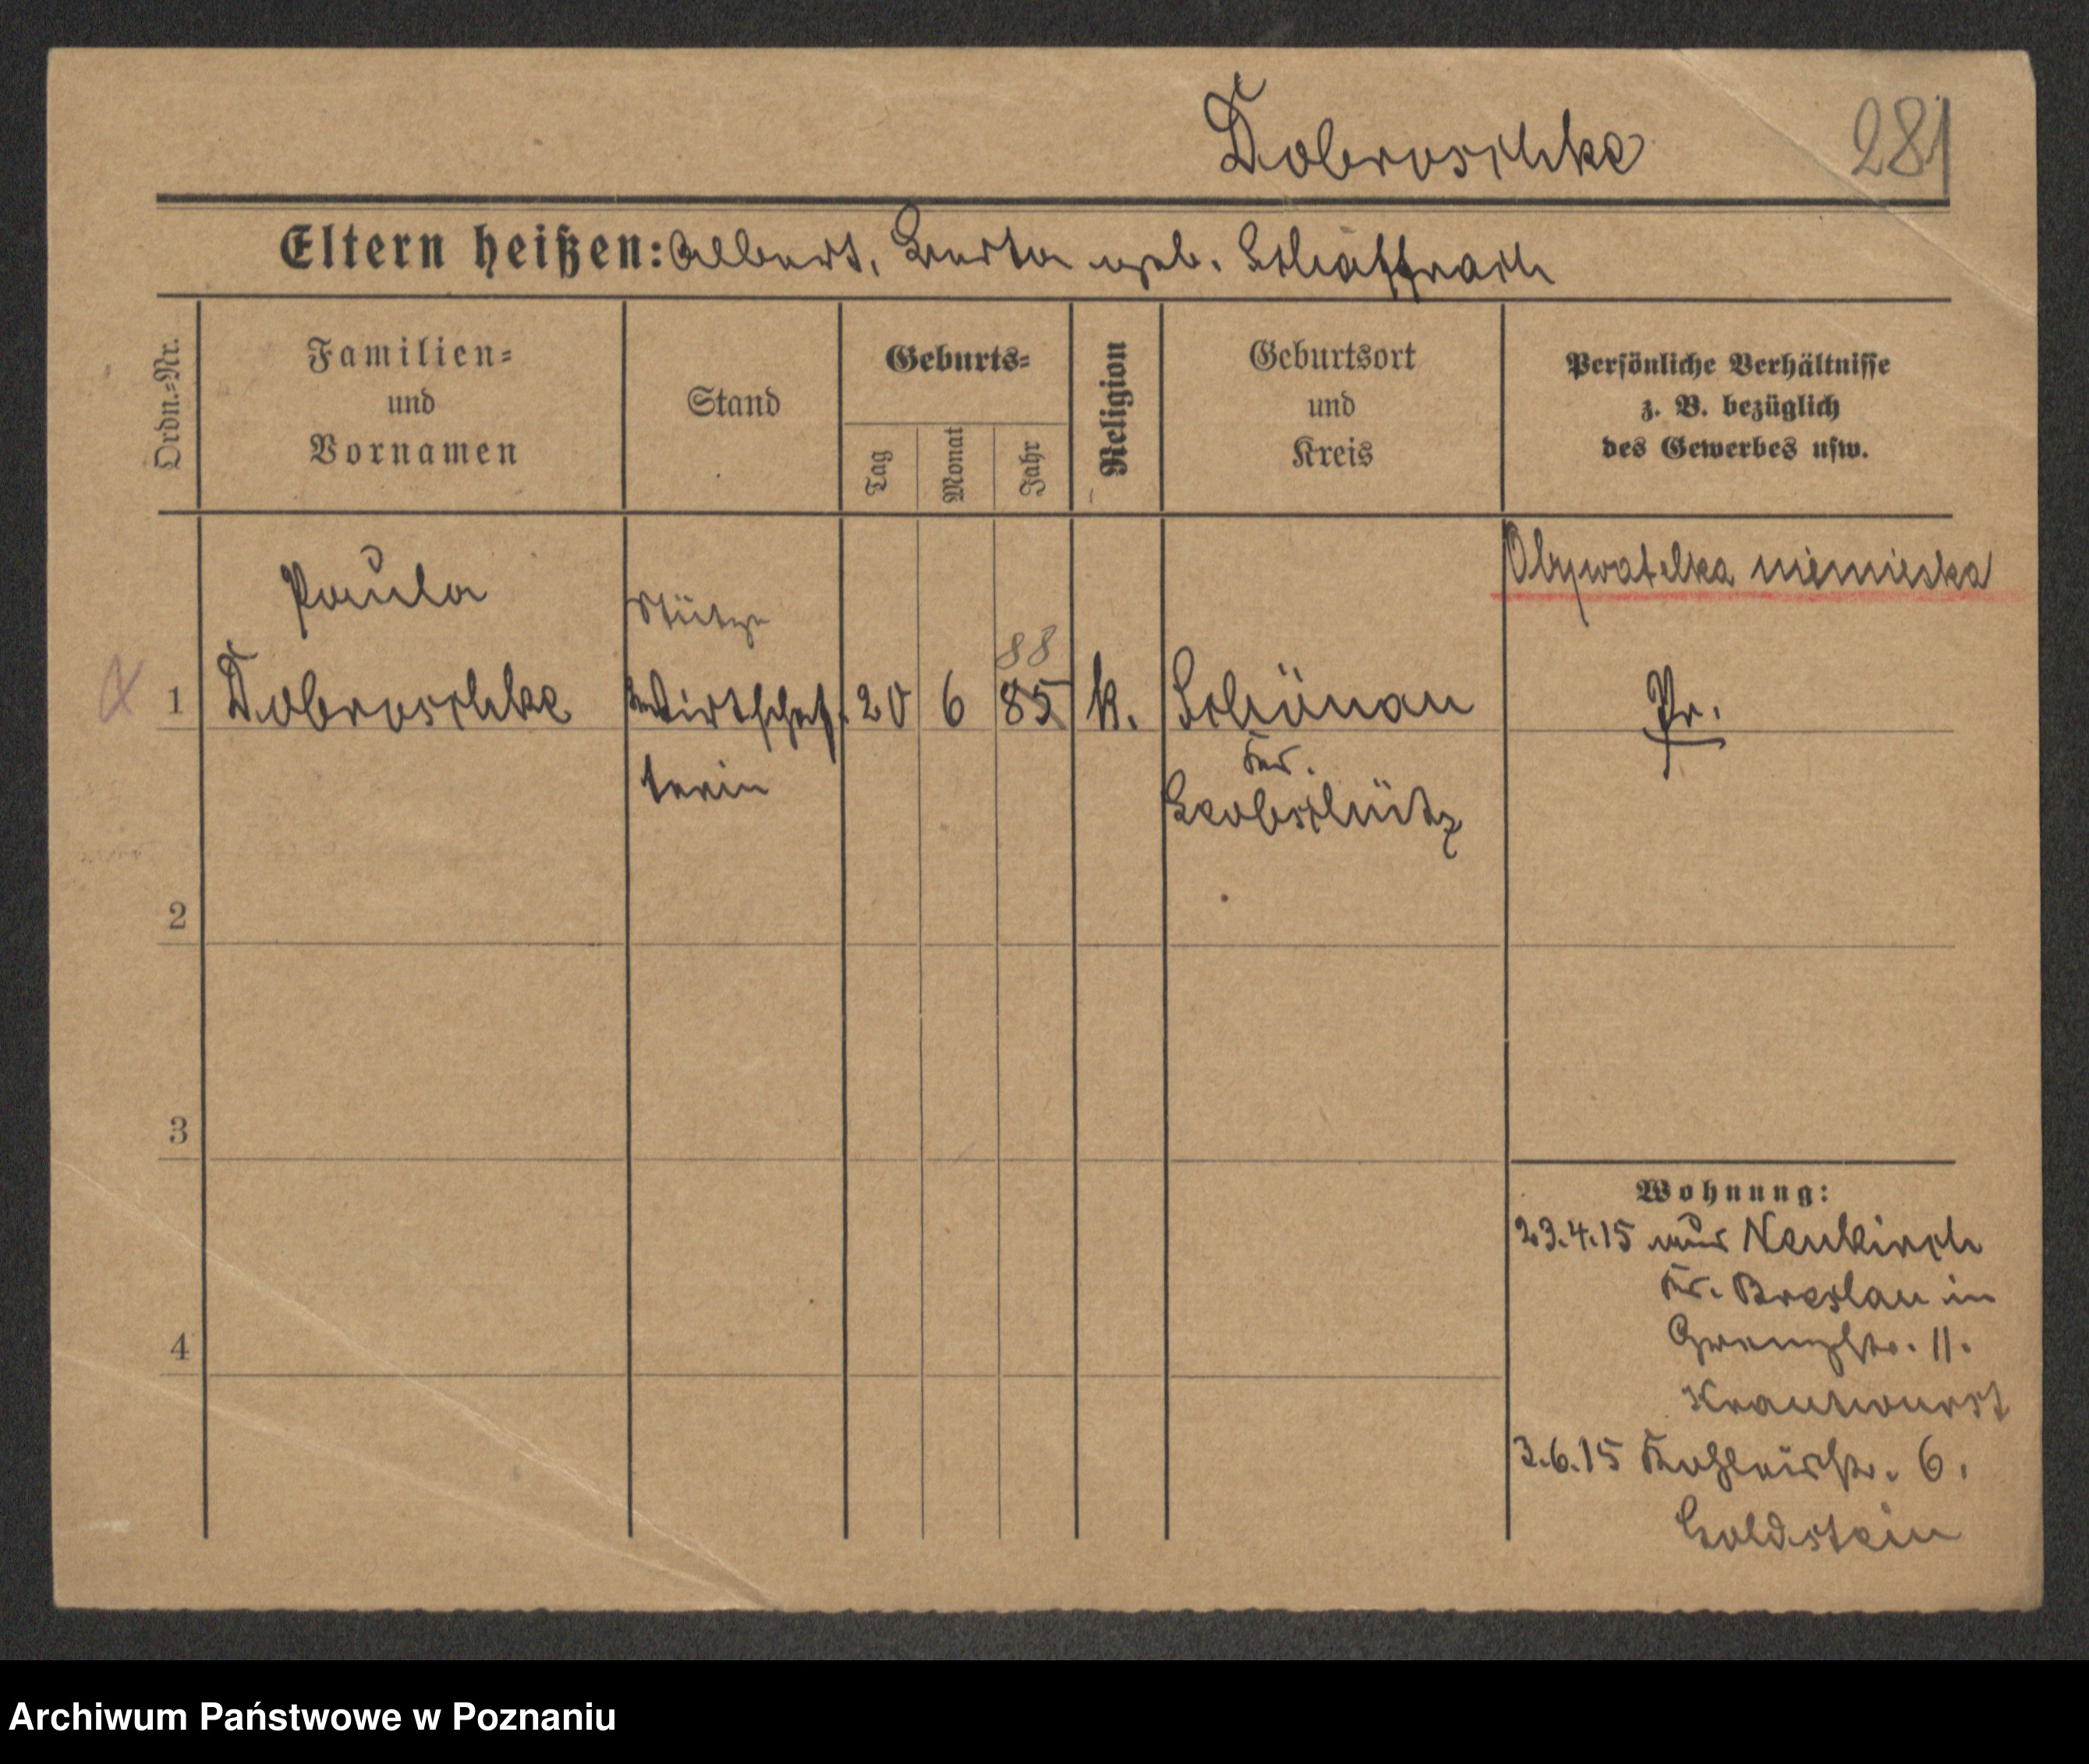 Dobroschke 281
Eltern heißen: Albert, Berta geb. Schaffrath
Ordn.=Nr.
Familien=
und
Vornamen
Stand
Geburts=
Tag
Monat
Jahr
Religion
Geburtsort
und
Kreis
Persönliche Verhältnisse
z. B. bezüglich
des Gewerbes usw.
Obywatelka niemieska
Paula
Stütze
88
1 Dobroschke Wirtschaf= 20 6 85 k. Schönau Pr.
terin
Kr.
Leobschütz
2
3
4
Wohnung:
23.4.15 aus Neukirch
Kr. Breslau in
Grenzstr. 11.
Krautwurst
3.6.15 Kohleisstr. 6.
Goldstein
Archiwum Państwowe w Poznaniu